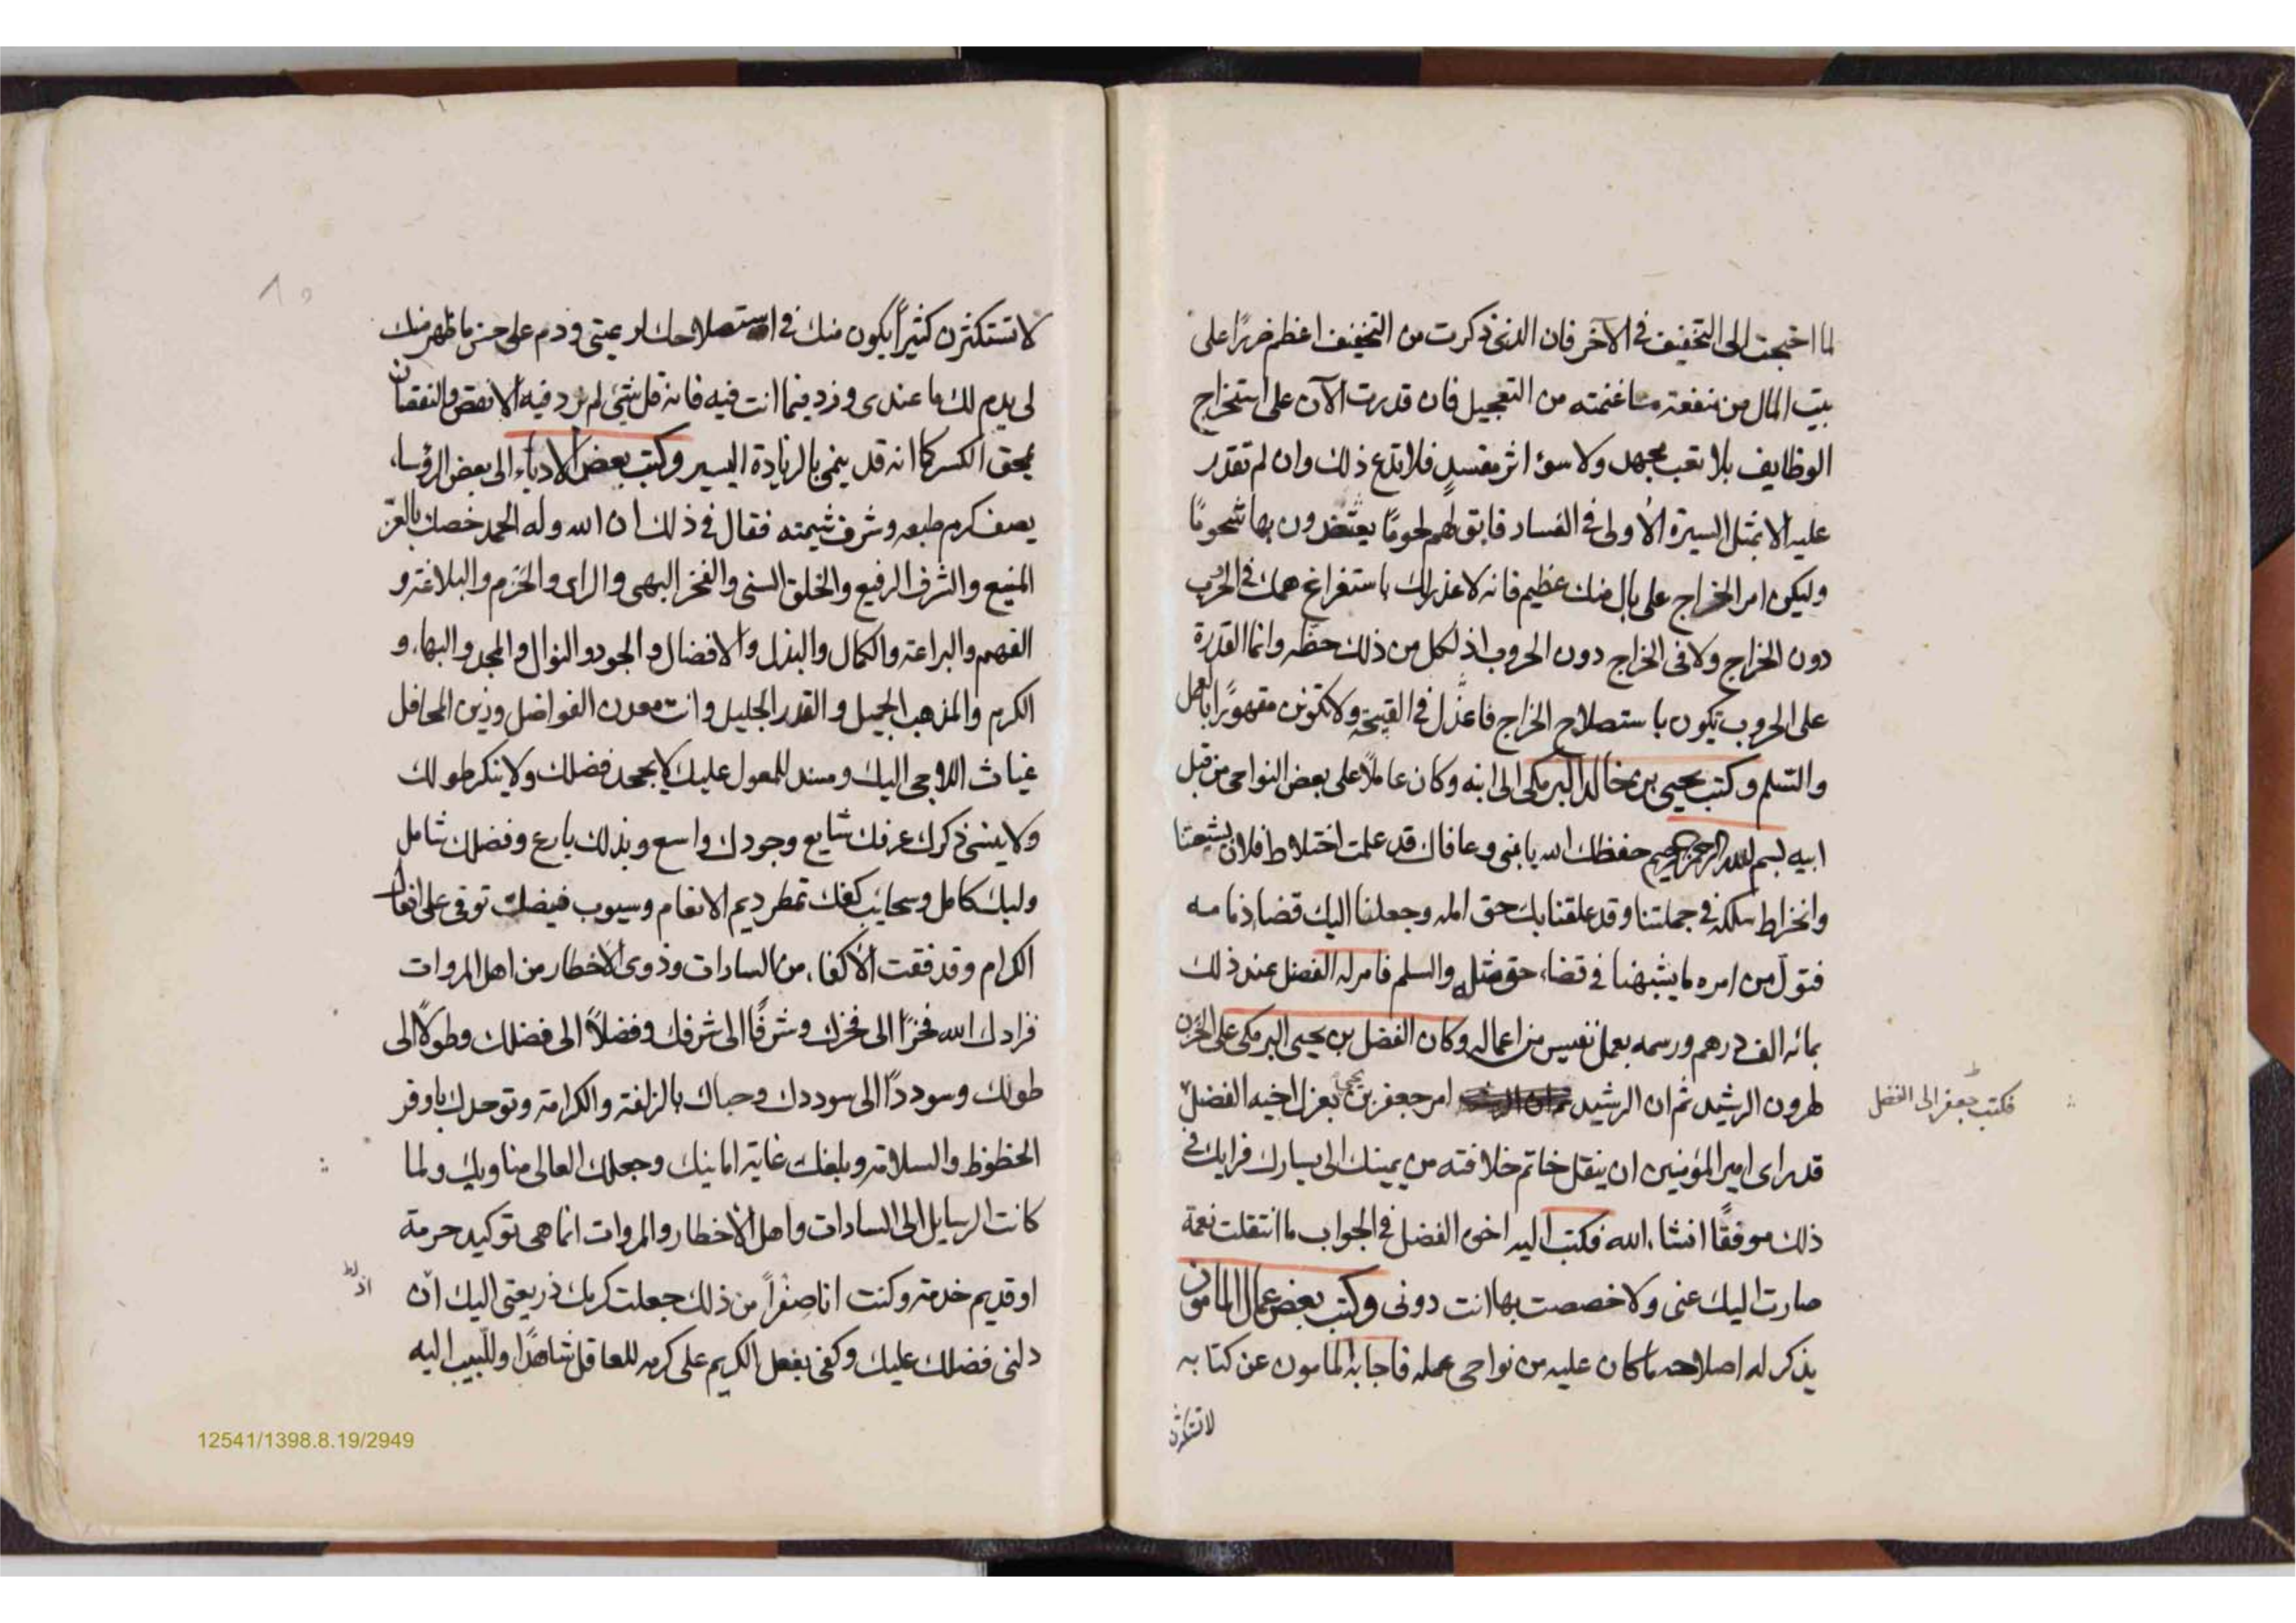 لما احتجت الى التخفيف في الآخر فان الذي ذكرت من التخفيف اعظم ضررًا على
بيت المال من منفعة ما غنمته من التعجيل فان قدرت الآن على استخراج
الوظايف بلا تعب مجهد ولا سوء اثر مفسدٍ فلا تدع ذلك وان لم تقدر
عليه الا بمثل السيرة الأولى في الفساد فابق لهم لحومًا يعتضدون بها شحومًا
وليكن امر الخراج على بال منك عظيم فانه لا عذر لك باستفراغ همك في الحروب
دون الخراج ولا في الخراج دون الحروب اذ لكل من ذلك حظه وانما القدرة
على الحروب تكون باستصلاح الخراج في ولا تكونن مقهورًا بالعمل
والسلم وكتب يحيى بن خالد البرمكى الى ابنه وكان عاملًا على بعض النواحى من قبل
ابيه بسم الله الرحمن الرحيم حفظك الله يا بنى وعافاك قد علمت اختلاط فلان بشيعتنا
وانخراط سلكه في جملتنا وقد علقنا بك حق امله وجعلنا اليك قضا ذمامه
فتولّ من امره ما يشبهنا في قضاء حق مثله والسلم فامر له الفضل عند ذلك
بمائه الف درهم ورسمه بعمل نفيس من اعماله وكان الفضل بن يحيى البرمكى على الخزن
لهرون الرشيد ثم ان الرشيد امر جعفر بن يحيى بعزل اخيه الفضل
فكتب جعفر الى الفضل
قد راى امير المؤمنين ان ينقل خاتم خلافته من يمينك الى يسارك فرايك في
ذلك موفقًا انشاء الله فكتب اليه اخوه الفضل في الجواب ما انتقلت نعمة
صارت اليك عنى ولا خصصت بها انت دونى وكتب بعض عمال المامون
يذكر له اصلاحه ما كان عليه من نواحى عمله فاجابه المامون عن كتابه
لا تستكثرن
١٥
لا تستكثرن كثيرًا يكون منك في استصلاحك لرعيتى ودم على حسن ما ظهر منك
لى يدم لك ما عندى وزد فيما انت فيه فانه قل شئ لم يزد فيه الا نقص والنقصان
يمحق الكسر كما انه قد ينمى بالزيادة اليسير وكتب بعض الادباء الى بعض الرؤساء
يصف كرم طبعه وشرف شيمته فقال في ذلك ان الله وله الحمد خصك بالعز
المنيع والشرف الرفيع والخلق السنى والفخر البهى والراى والحزم والبلاغة و
الفهم والبراعة والكمال والبذل والافضال والجود والنوال والمجد والبهاء و
الكرم والمذهب الجميل والقدر الجليل وانت معدن الفواضل وزين المحافل
غياث اللاجى اليك ومسند للمعول عليك لا يجحد فضلك ولا ينكر طولك
ولا ينسى ذكرك عرفك شايع وجودك واسع وبذلك بارع وفضلك شامل
ولبك كامل وسحايب كفك تمطر ديم الانعام وسيوب فيضك توفى على افعال
الكرام وقد فقت الأكفاء من السادات وذوى الاخطار من اهل المروات
فزادك الله فخرًا الى فخرك وشرفًا الى شرفك وفضلاً الى فضلك وطولًا الى
طولك وسوددًا الى سوددك وحباك بالزلفة والكرامة وتوحدك باوفر
الحظوظ والسلامة وبلغك غاية امانيك وجعلك العالى مناويك ولما
كانت الرسايل الى السادات واهل الأخطار والمروات انما هى توكيد حرمة
او قديم خدمة وكنت انا صفرًا من ذلك جعلت كرمك ذريعتى اليك ان
اذ
دلنى فضلك عليك وكفى بفعل الكريم على كرمه للعاقل شاهدًا وللّبيب اليه
12541/1398.8.19/2949